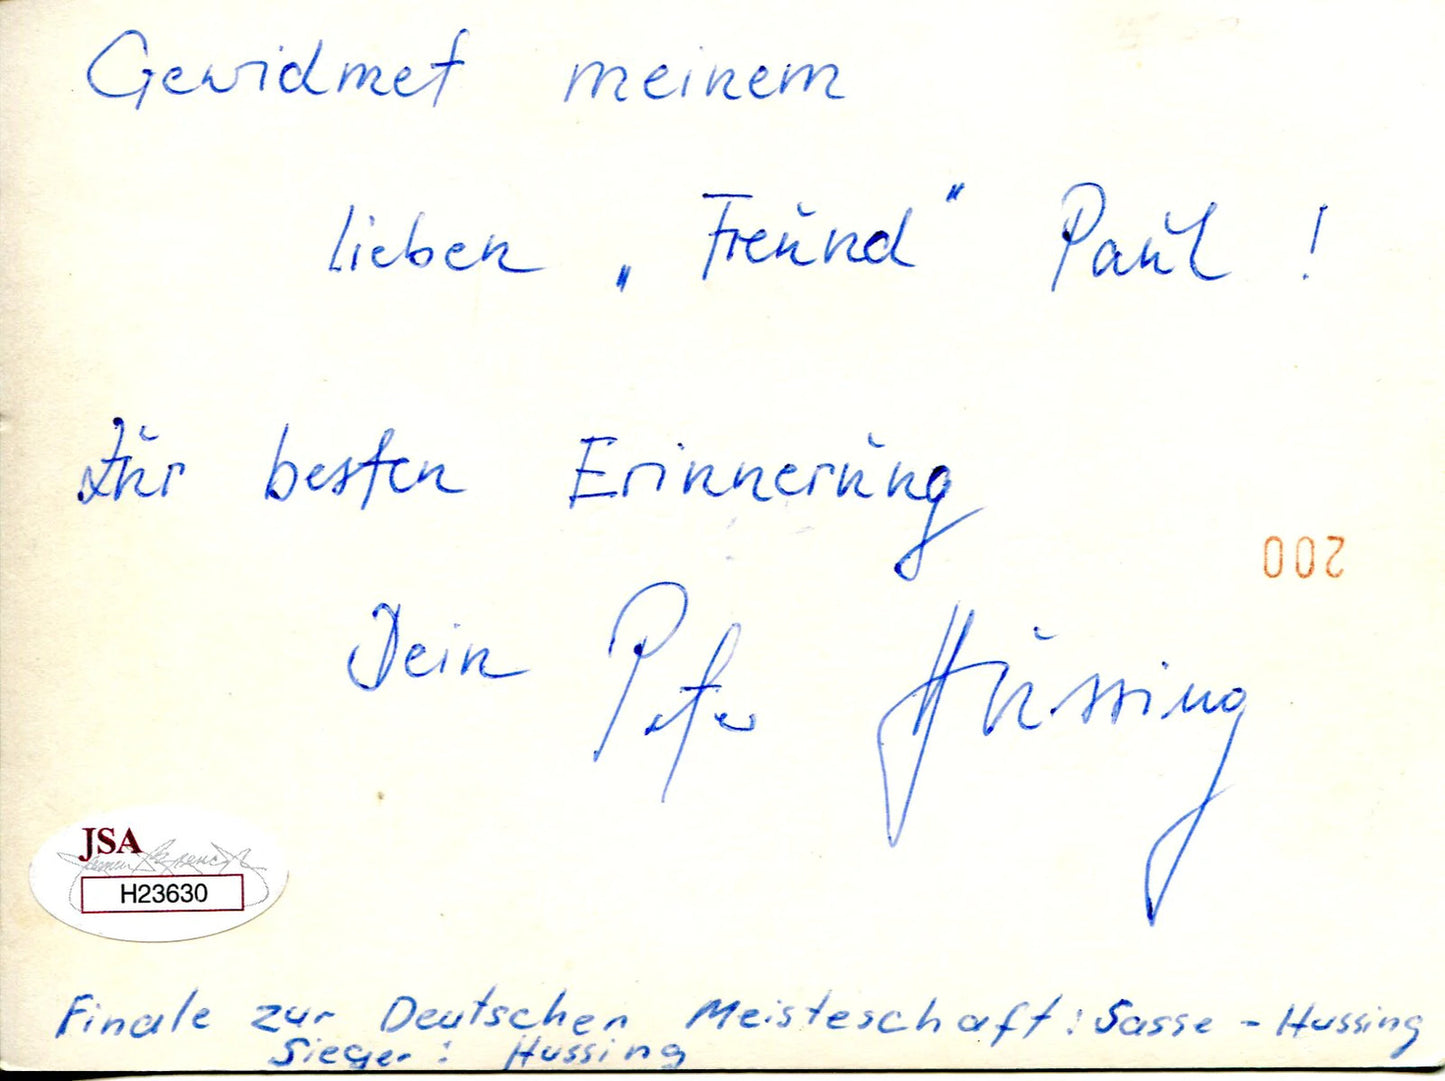 Gewidmet meinem
lieben „Freund“ Paul!
Zur besten Erinnerung
200
Dein Peter Hussing
JSA
H23630
Finale zur Deutschen Meisteschaft: Sasse - Hussing
Sieger: Hussing